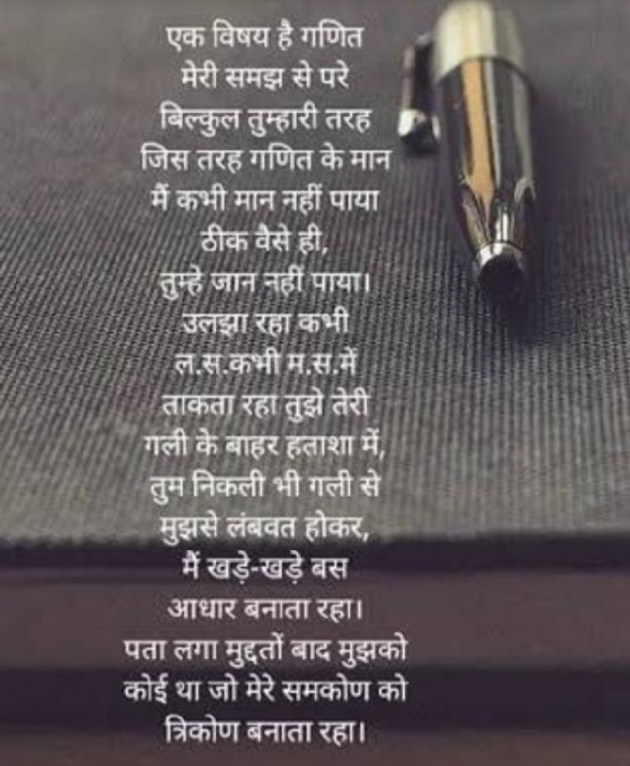 एक विषय है गणित
मेरी समझ से परे
बिल्कुल तुम्हारी तरह
जिस तरह गणित के मान
मैं कभी मान नहीं पाया
ठीक वैसे ही,
तुम्हे जान नहीं पाया।
उलझा रहा कभी
ल.स.कभी म.स.में
ताकता रहा तुझे तेरी
गली के बाहर हताशा में,
तुम निकली भी गली से
मुझसे लंबवत होकर,
मैं खड़े-खड़े बस
आधार बनाता रहा।
पता लगा मुद्दतों बाद मुझको
कोई था जो मेरे समकोण को
त्रिकोण बनाता रहा।